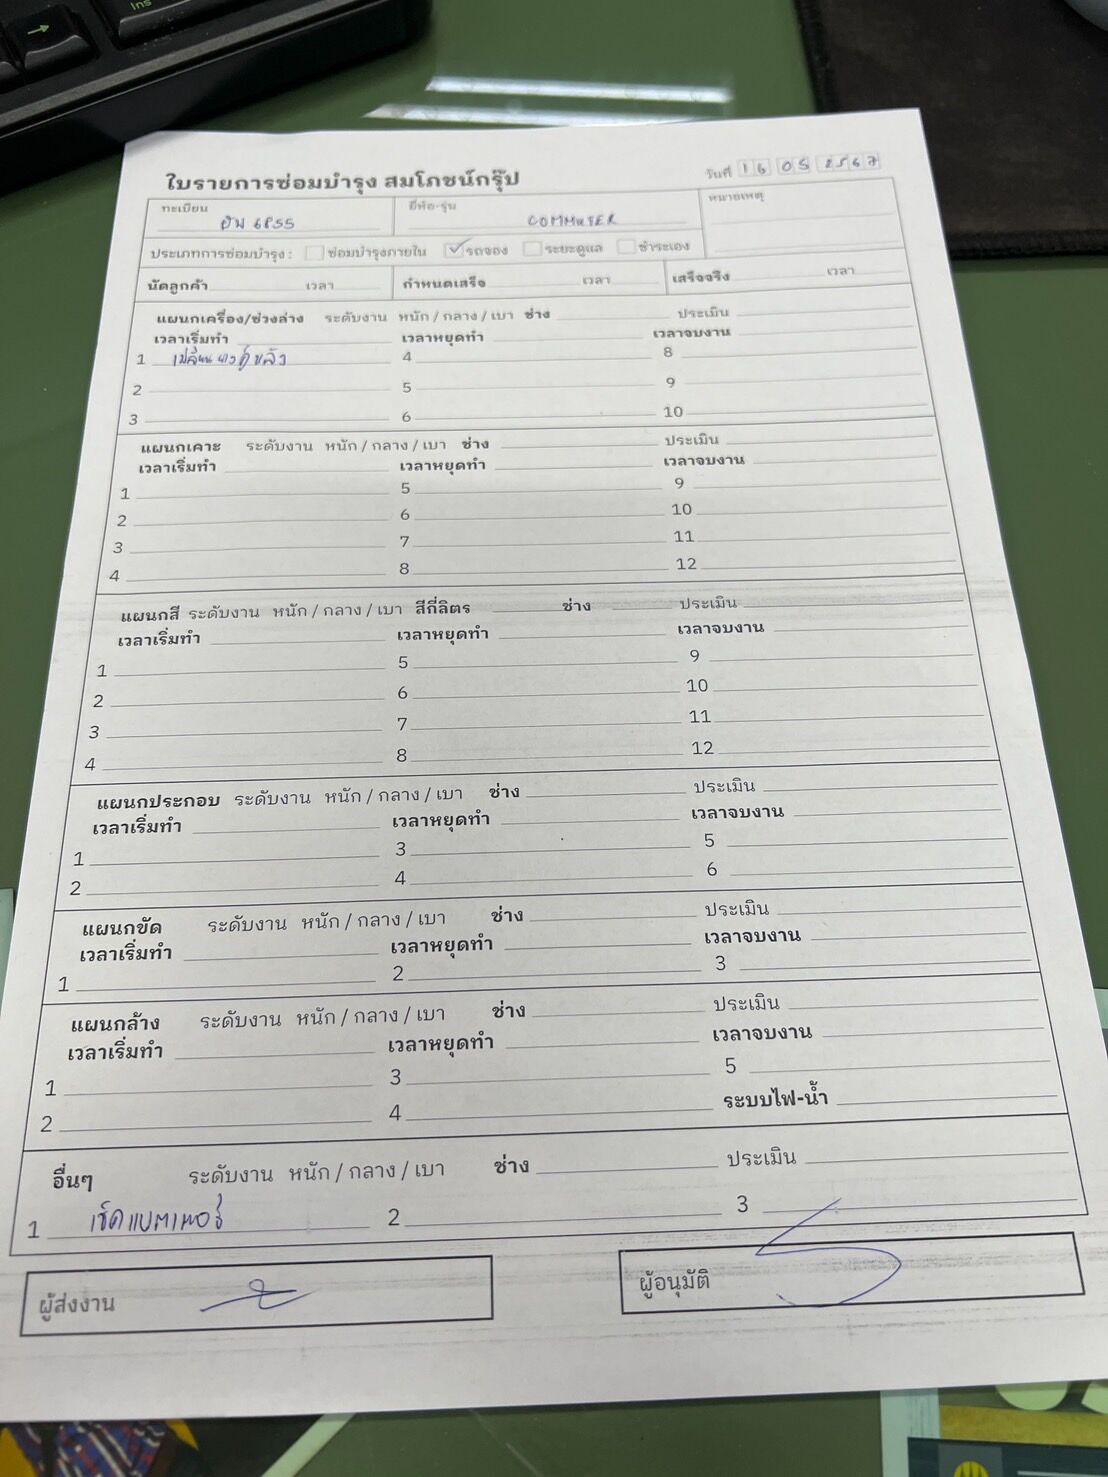 Ins
ใบรายการซ่อมบำรุง สมโภชน์กรุ๊ป
วันที่ 16 05 2567
ทะเบียน ฮน 6855 ยี่ห้อ-รุ่น COMMUTER หมายเหตุ
ประเภทการซ่อมบำรุง : ซ่อมบำรุงภายใน รถจอง ระยะดูแล ชำระเอง
นัดลูกค้า เวลา กำหนดเสร็จ เวลา เสร็จจริง เวลา
แผนกเครื่อง/ช่วงล่าง ระดับงาน หนัก / กลาง / เบา ช่าง ประเมิน
เวลาเริ่มทำ เวลาหยุดทำ เวลาจบงาน
1 เปลี่ยนยางคู่หลัง 4 8
2 5 9
3 6 10
แผนกเคาะ ระดับงาน หนัก / กลาง / เบา ช่าง ประเมิน
เวลาเริ่มทำ เวลาหยุดทำ เวลาจบงาน
1 5 9
2 6 10
3 7 11
4 8 12
แผนกสี ระดับงาน หนัก / กลาง / เบา สีกี่ลิตร ช่าง ประเมิน
เวลาเริ่มทำ เวลาหยุดทำ เวลาจบงาน
1 5 9
2 6 10
3 7 11
4 8 12
แผนกประกอบ ระดับงาน หนัก / กลาง / เบา ช่าง ประเมิน
เวลาเริ่มทำ เวลาหยุดทำ เวลาจบงาน
1 3 5
2 4 6
แผนกขัด ระดับงาน หนัก / กลาง / เบา ช่าง ประเมิน
เวลาเริ่มทำ เวลาหยุดทำ เวลาจบงาน
1 2 3
แผนกล้าง ระดับงาน หนัก / กลาง / เบา ช่าง ประเมิน
เวลาเริ่มทำ เวลาหยุดทำ เวลาจบงาน
1 3 5
2 4 ระบบไฟ-น้ำ
อื่นๆ ระดับงาน หนัก / กลาง / เบา ช่าง ประเมิน
1 เช็คแบตเตอรี่ 2 3
ผู้ส่งงาน ผู้อนุมัติ